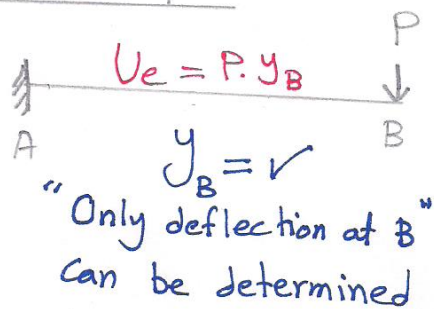 P
Ue = P.yB
A
B
yB = ✓
"Only deflection at B"
can be determined